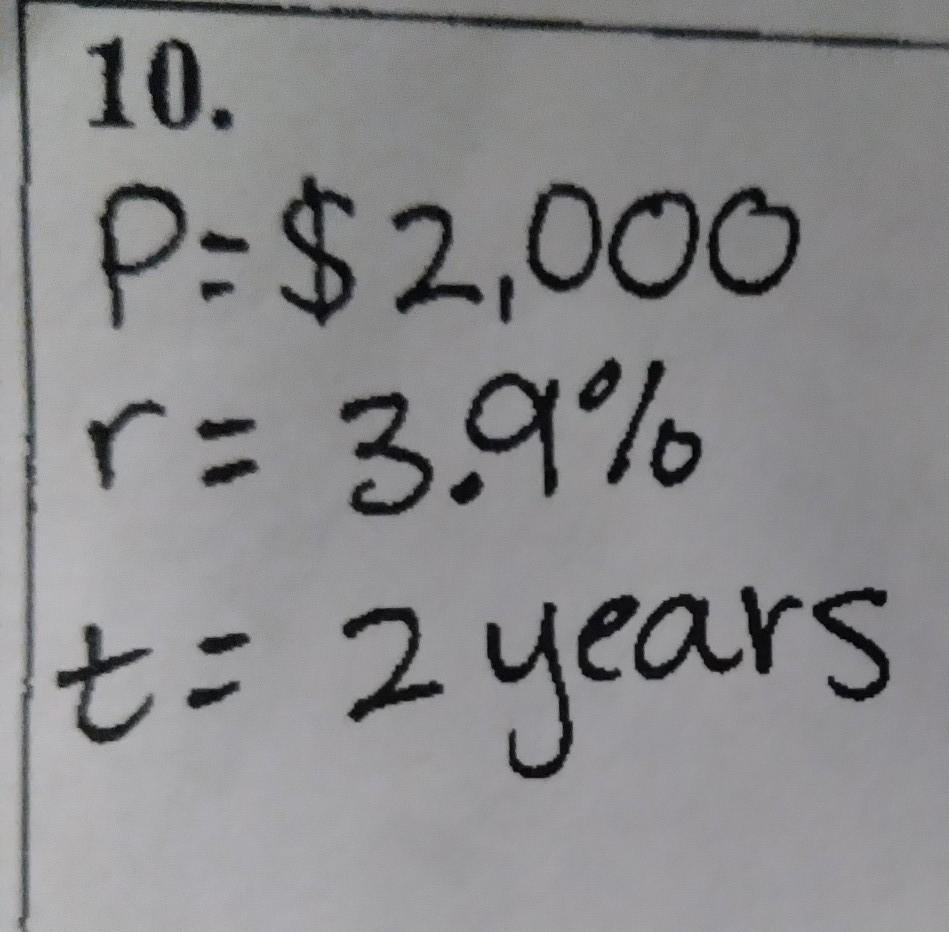 10.
P=$2,000
r= 3.9%
t= 2 years